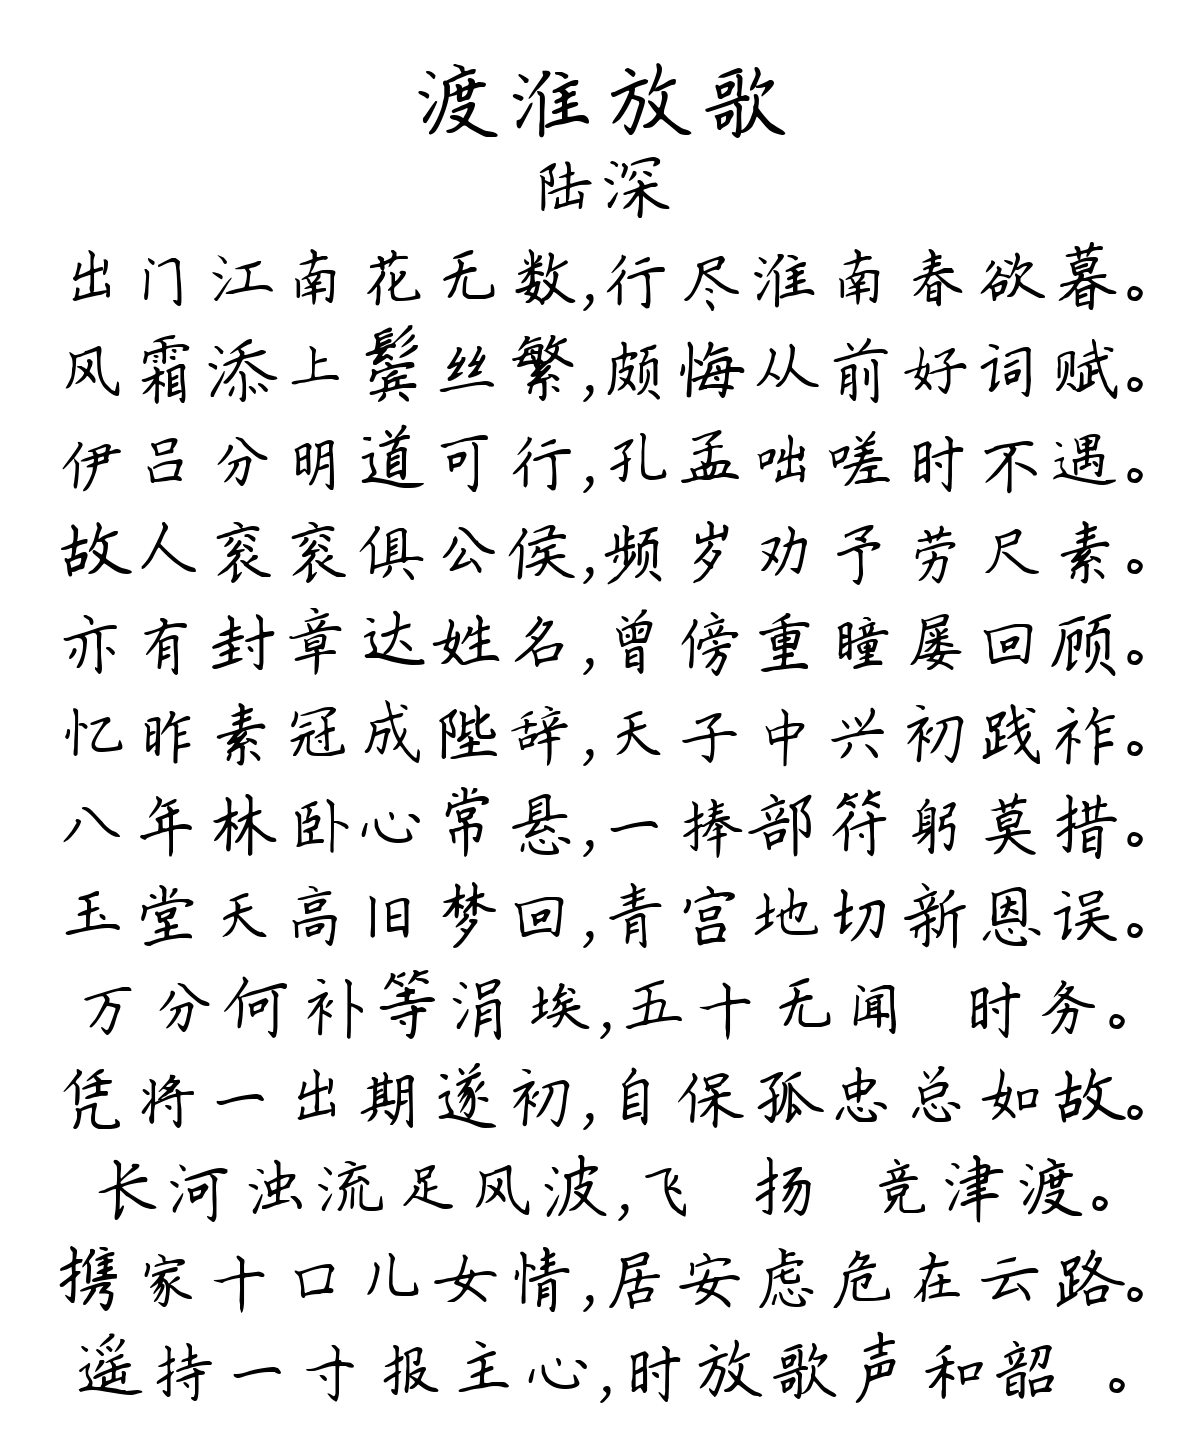 渡淮放歌
陆深
出门江南花无数,行尽淮南春欲暮。
风霜添上鬓丝繁,颇悔从前好词赋。
伊吕分明道可行,孔孟咄嗟时不遇。
故人衮衮俱公侯,频岁劝予劳尺素。
亦有封章达姓名,曾傍重瞳屡回顾。
忆昨素冠成陛辞,天子中兴初践祚。
八年林卧心常悬,一捧部符躬莫措。
玉堂天高旧梦回,青宫地切新恩误。
万分何补等涓埃,五十无闻 时务。
凭将一出期遂初,自保孤忠总如故。
长河浊流足风波,飞 扬 竞津渡。
携家十口儿女情,居安虑危在云路。
遥持一寸报主心,时放歌声和韶 。